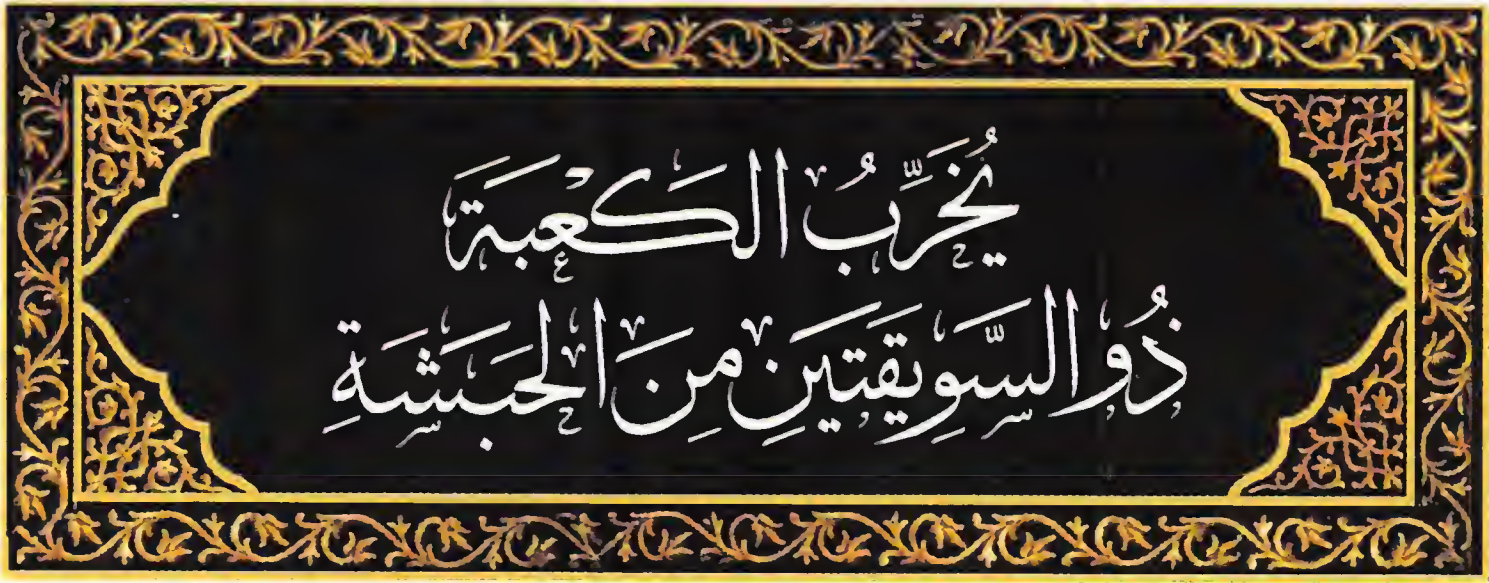 يُخَرِّبُ الْكَعْبَةَ
ذُو السَّوِيقَتَيْنِ مِنَ الْحَبَشَةِ